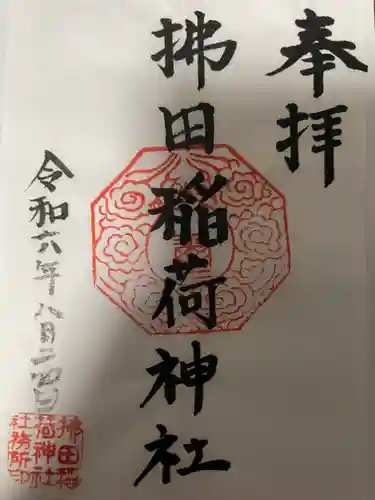 奉拝
拂田稲荷神社
令和六年八月二四日
拂田稲荷神社社務所印